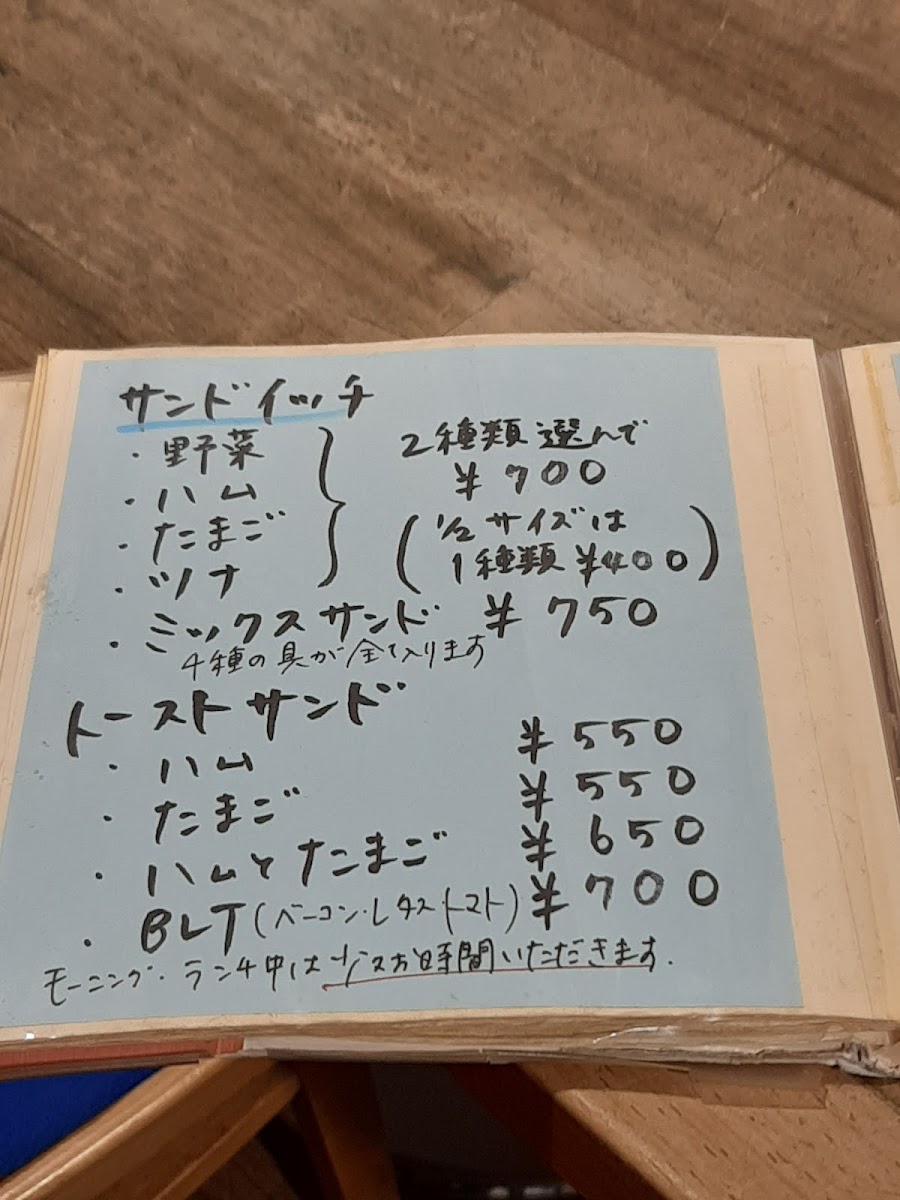 サンドイッチ
・野菜
・ハム
・たまご
・ツナ
2種類選んで
¥700
(1/2サイズは
1種類 ¥400)
・ミックスサンド ¥750
4種の具が全て入ります
トーストサンド
・ハム ¥550
・たまご ¥550
・ハムとたまご ¥650
・BLT(ベーコン・レタストマト) ¥700
モーニング・ランチ中は お時間いただきます.